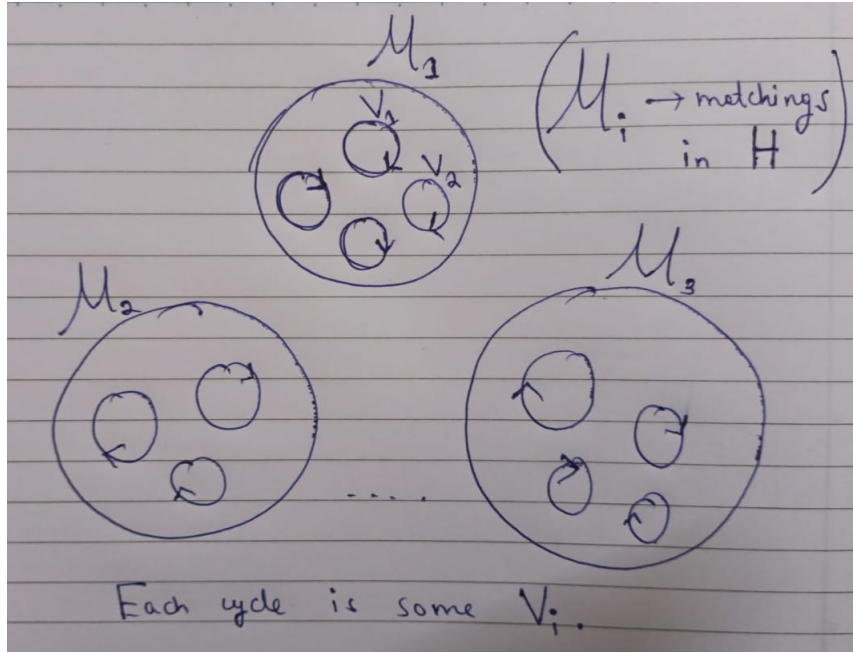 M₁
(M_i → matchings
in H)
V₁
V₂
M₂
M₃
....
Each cycle is some V_i.